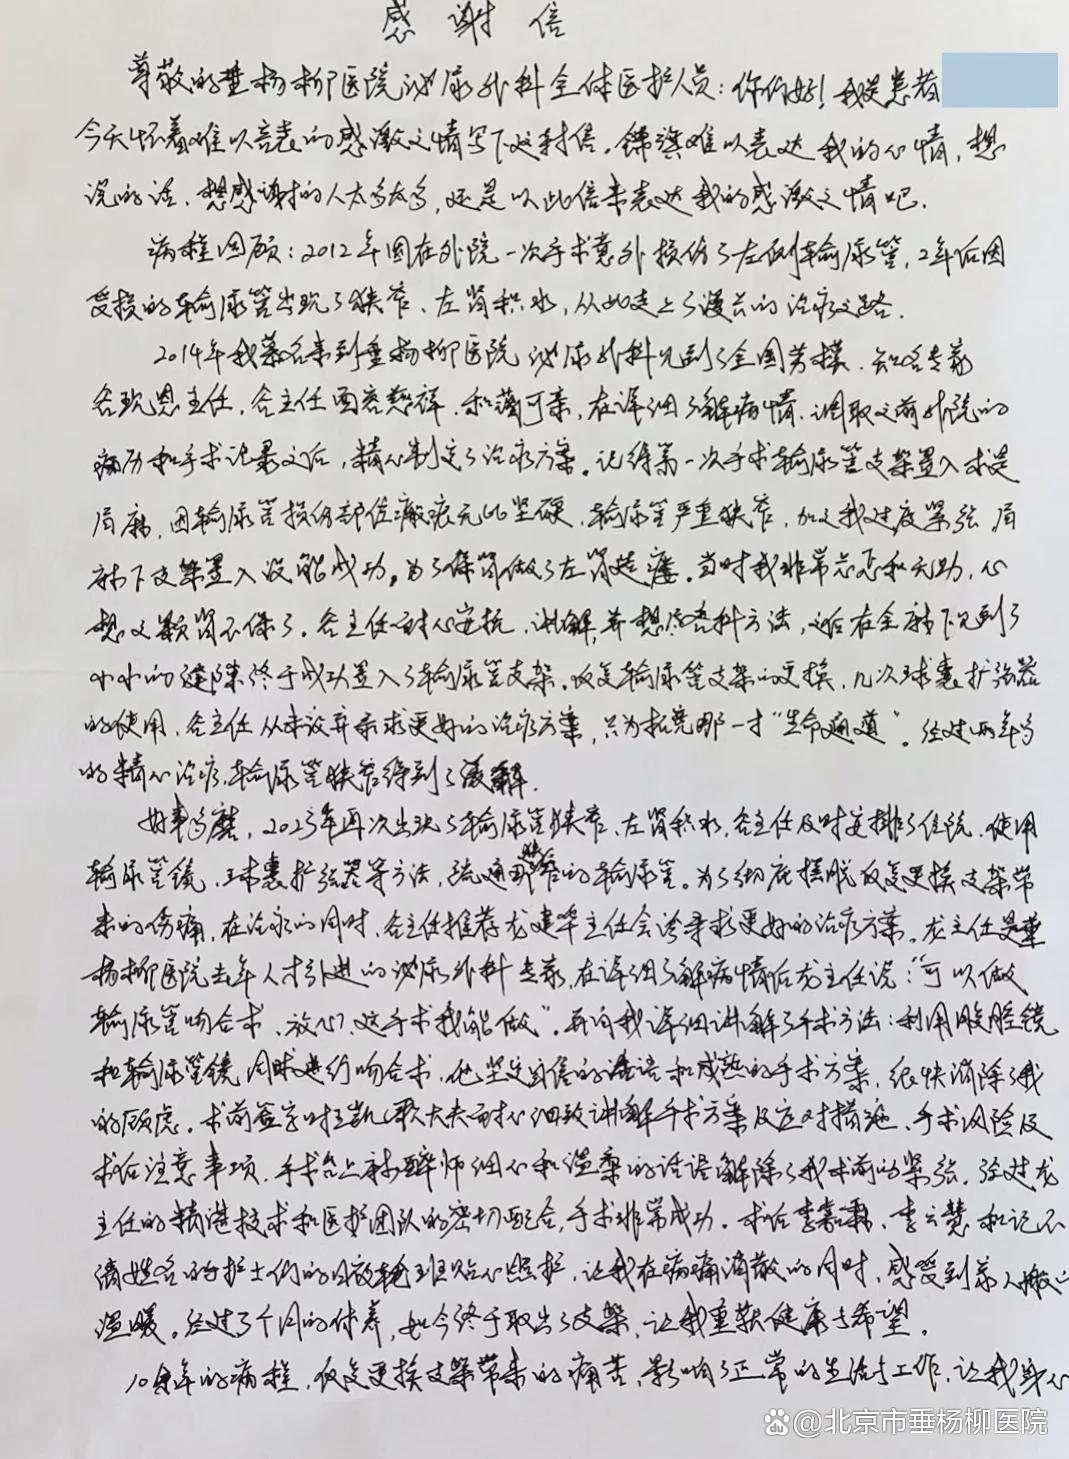 感谢信
尊敬的垂杨柳医院泌尿外科全体医护人员：你们好！我是患者
今天怀着难以言表的感激之情写下这封信。锦旗难以表达我的心情，想
说的话，想感谢的人太多太多，还是以此信来表达我的感激之情吧.
病程回顾：2012年因在外院一次手术意外损伤了左侧输尿管，2年后因
受损的输尿管出现了狭窄、左肾积水，从此走上了漫长的治疗之路.
2014年我慕名来到垂杨柳医院泌尿外科见到了全国劳模、知名专家
谷现恩主任，谷主任面容慈祥、和蔼可亲，在详细了解病情、调取之前外院的
病历和手术记录之后，精心制定了治疗方案。记得第一次手术输尿管支架置入术是
局麻，因输尿管损伤部位瘢痕无比坚硬、输尿管严重狭窄，加之我过度紧张局
麻下支架置入没能成功。为了保肾做了左肾造瘘。当时我非常忐忑和无助，心
想这颗肾不保了。谷主任耐心安抚、讲解，并想尽各种方法，之后在全麻下见到了
小小的缝隙终于成功置入了输尿管支架。反复输尿管支架的更换，几次球囊扩张器
的使用，谷主任从未放弃寻求更好的治疗方案，只为拓宽那一寸“生命通道”。经过两年多
的精心治疗，输尿管狭窄得到了缓解.
好事多磨，2023年再次出现了输尿管狭窄、左肾积水，谷主任及时安排了住院，使用
输尿管镜、球囊扩张器等方法，疏通那狭窄的输尿管。为了彻底摆脱反复更换支架带
来的伤痛，在治疗的同时，谷主任推荐龙建华主任会诊寻求更好的治疗方案。龙主任是垂
杨柳医院去年人才引进的泌尿外科专家，在详细了解病情后龙主任说：“可以做
输尿管吻合术、放心，这手术我能做”。并向我详细讲解了手术方法：利用腹腔镜
和输尿管镜同时进行吻合术，他坚定自信的话语和成熟的手术方案，很快消除了我
的顾虑。术前签字时王凯大夫耐心细致讲解手术方案及应对措施、手术风险及
术后注意事项，手术台上麻醉师细心和温柔的话语解除了我术前的紧张，经过龙
主任的精湛技术和医护团队的密切配合，手术非常成功。术后李嘉霖、李云慧和记不
清姓名的护士们的日夜轮班贴心照护，让我在病痛消散的同时，感受到家人般的
温暖。经过3个月的休养，如今终于取出了支架，让我重获健康与希望。
10余年的病程，反复更换支架带来的痛苦，影响了正常的生活与工作，让我身心
@北京市垂杨柳医院